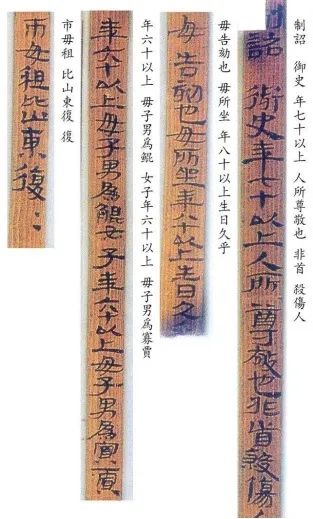 制詔 御史 年七十以上 人所尊敬也 非首 殺傷人
詔 御史年七十以上人所尊敬也非首殺傷
毋告劾也 毋所坐 年八十以上生日久乎
毋告劾也毋所坐年八十以上生日久
年六十以上 毋子男為鯤 女子年六十以上 毋子男為寡賈
年六十以上毋子男為鯤女子年六十以上毋子男為寡賈
市毋租 比山東復 復
市毋租比山東復〻